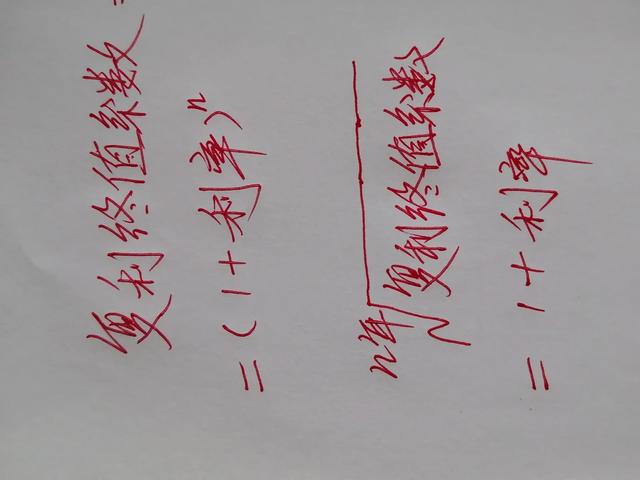 复利终值系数 =
= (1 + 利率)ⁿ
n年√复利终值系数
= 1 + 利率